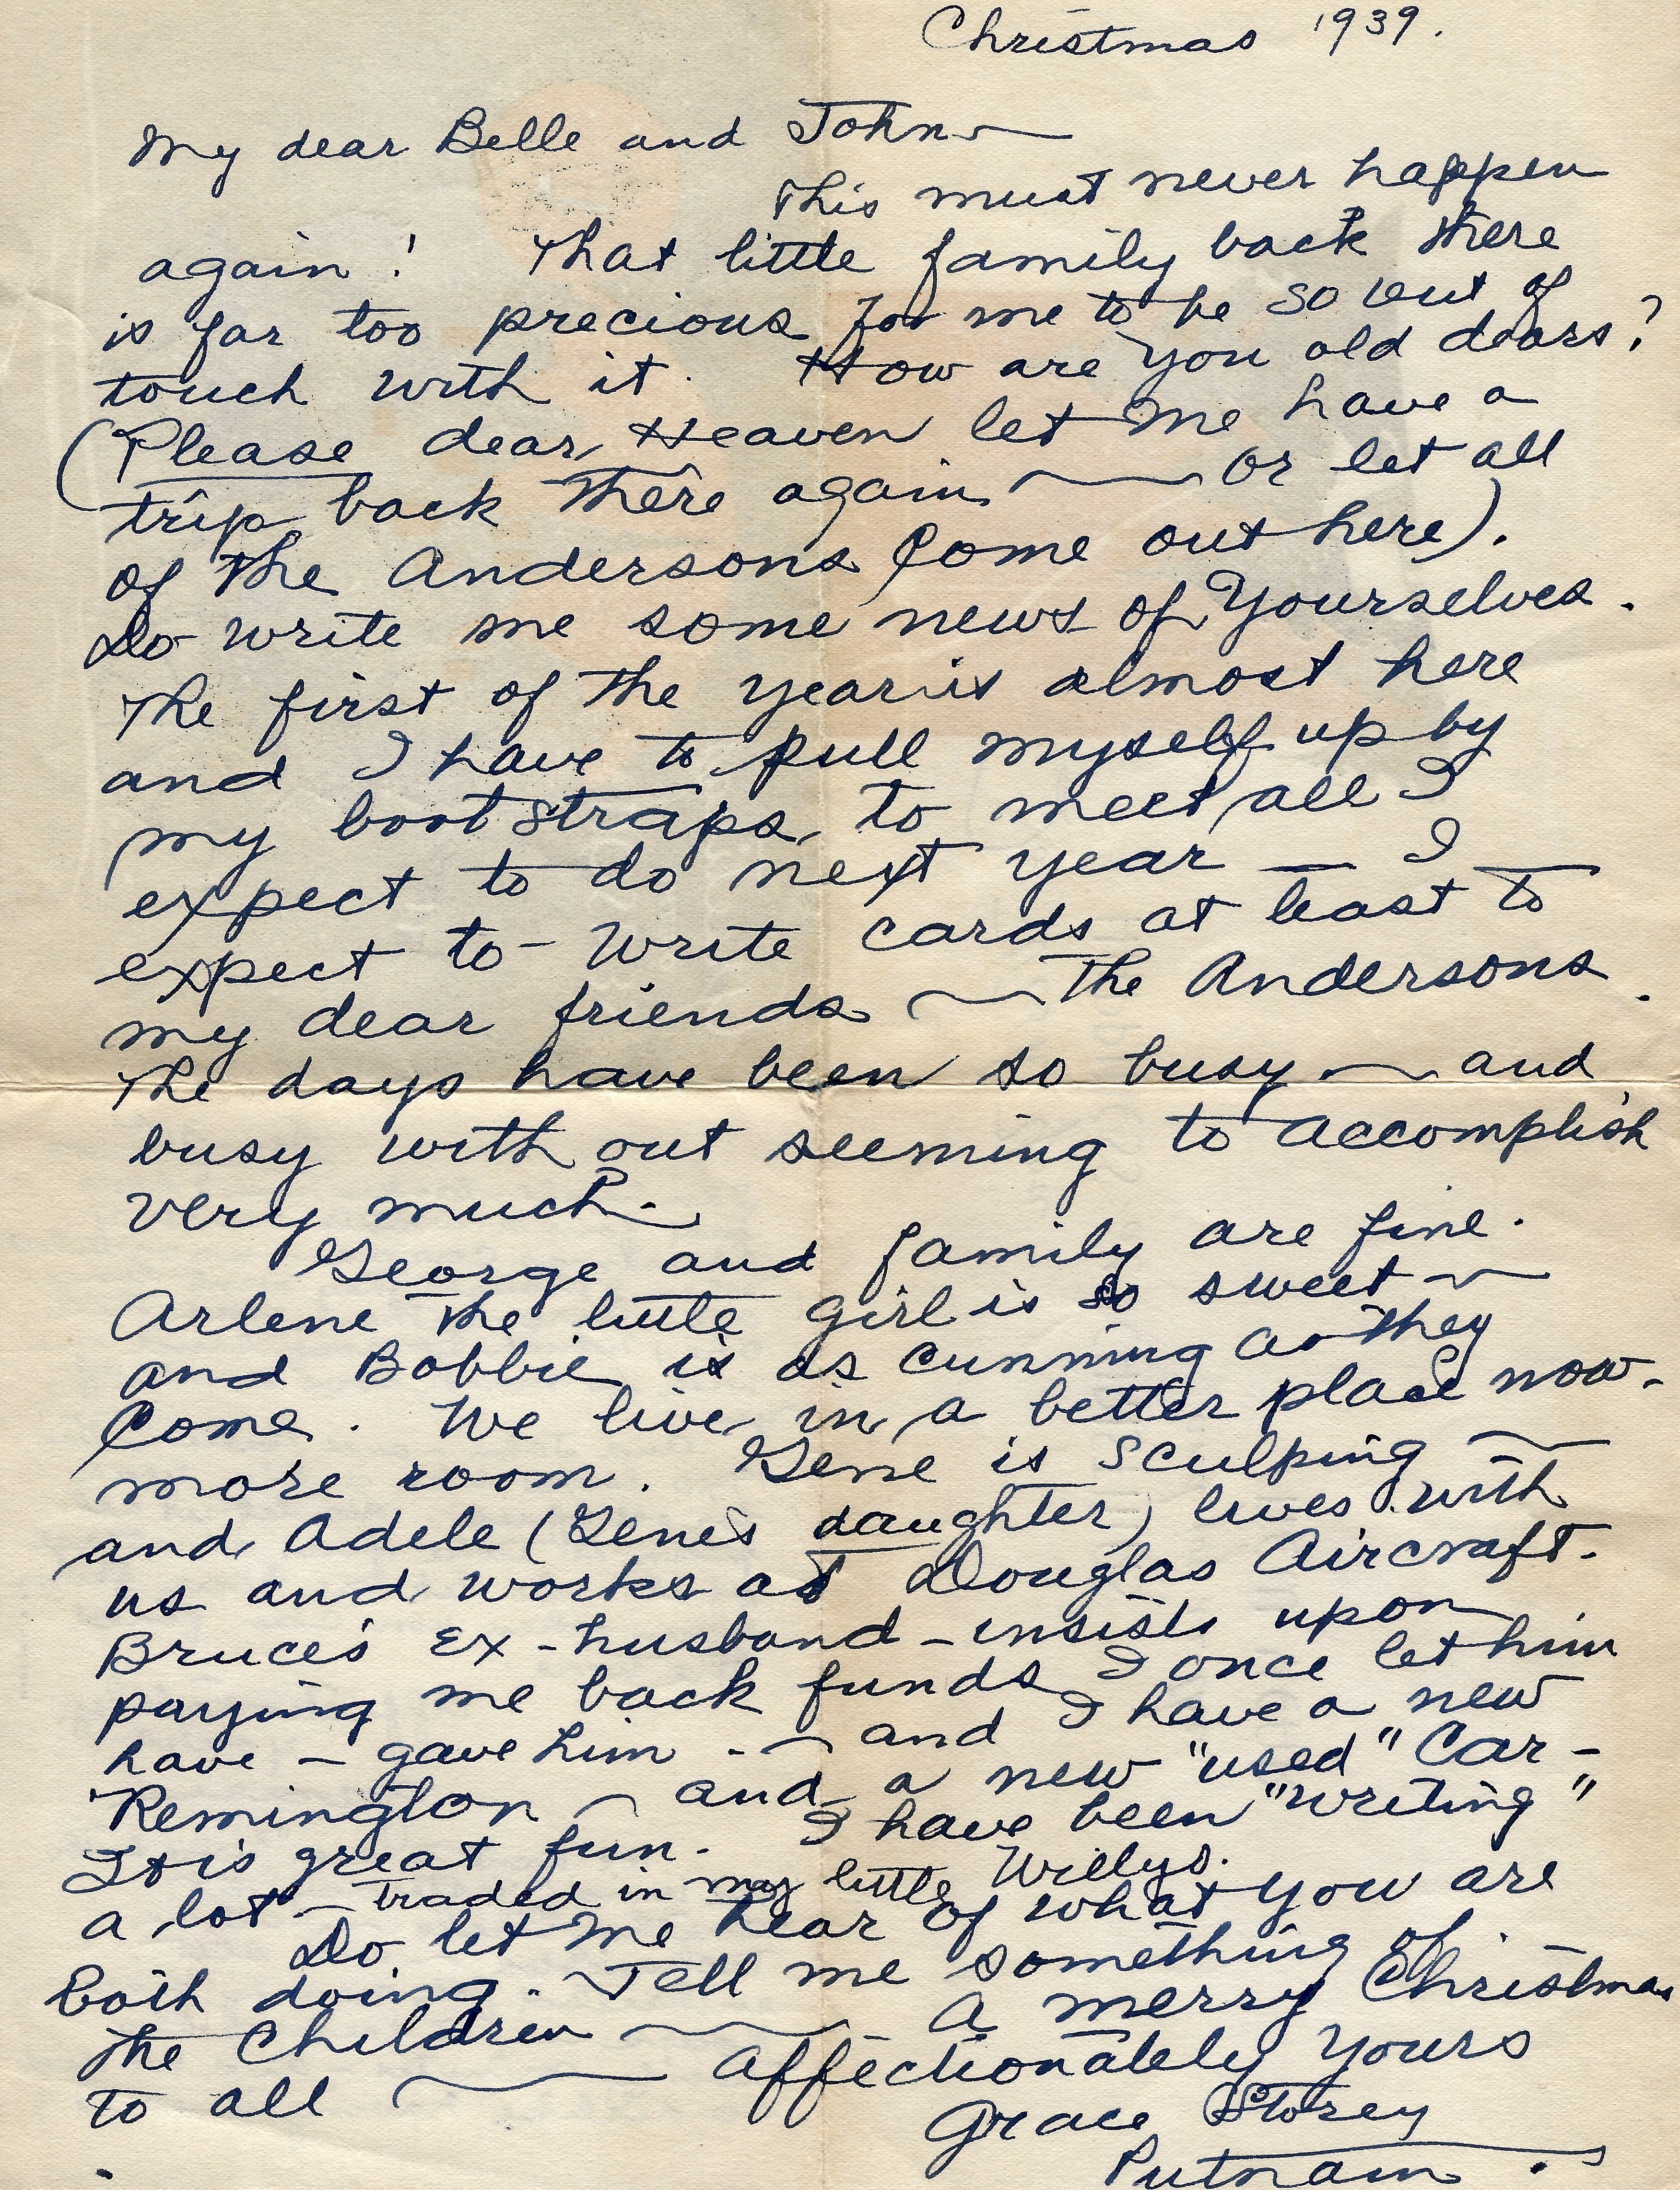 Christmas 1939.
My dear Belle and John —
This must never happen
again! That little family back there
is far too precious for me to be so out of
touch with it. How are you old dears?
(Please dear Heaven let me have a
trip back there again — or let all
of the Andersons come out here).
Do write me some news of yourselves.
The first of the year is almost here
and I have to pull myself up by
my boot straps to meet all I
expect to do next year — I
expect to - write cards at least to
my dear friends — the Andersons.
The days have been so busy — and
busy with out seeming to accomplish
very much.
George and family are fine.
Arlene the little girl is so sweet —
and Bobbie is as cunning as they
come. We live in a better place now -
more room. Gene is sculping —
and Adele (Gene's daughter) lives with
us and works at Douglas Aircraft.
Bruce's ex - husband - insists upon
paying me back funds I once let him
have - gave him - — and I have a new
Remington — and a new "used" car -
It is great fun. I have been "writing"
a lot - traded in my little Willys.
Do let me hear of what you are
both doing. Tell me something of
the children — A merry Christmas
to all — Affectionately yours
Grace Storey
Putnam.